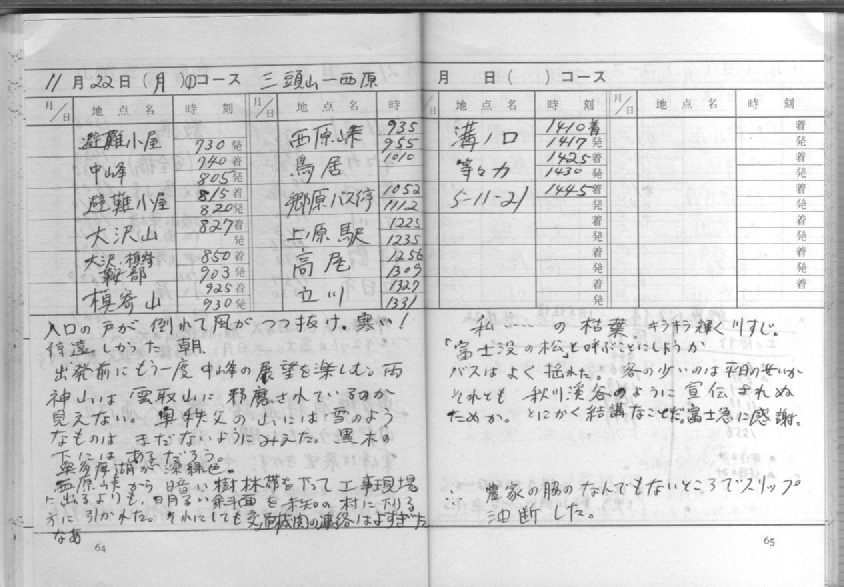 11月22日(月)①コース 三頭山―西原
月/日 地点名 時刻 月/日 地点名 時
避難小屋 730発
中山峰 740着 805発
避難小屋 815着 820発
大沢山 827着 発
大沢、槙寄鞍部 850着 903発
槙寄山 925着 930発
西原峠 935 955
鳥居 1010
郷原バス停 1052 1112
上原駅 1225 1235
高尾 1256 1309
立川 1327 1331
入口の戸が倒れて風がつつ抜け。寒い!
待遠しかった朝
出発前にもう一度中山峰の展望を楽しむ。両
神山は雲取山に邪魔されているのか
見えない。奥秩父の山には雪のよう
なものはまだないようにみえた。黒木の
下にはあるだろう。
奥多摩湖が深緑色。
西原峠から暗い樹林帯を下って工事現場
に出るよりも、明るい斜面を未知の村に下る
方に引かれた。それにしても交通機関の連絡はよすぎた
なあ
64
月 日( )コース
月/日 地点名 時刻
溝ノ口 1410着 1417発
等々力 1425着 1430発
5-11-21 1445着 発
着
発
着
発
着
発
私……の枯葉 キラキラ輝く川すじ。
「富士没の松」と呼ぶことにしようか
バスはよく揺れた。客の少いのは平日のせいか
それとも秋川渓谷のように宣伝されぬ
ためか。とにかく結講なことだ。富士急に感謝。
∴ 農家の脇のなんでもないところでスリップ
油断した。
65